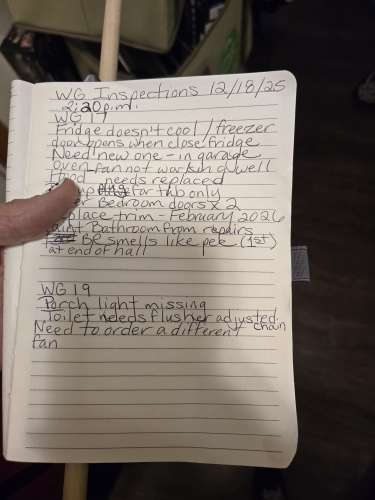 WG Inspections 12/18/25
2:20 p.m.
WG 17
Fridge doesn't cool / freezer
door opens when close fridge
Need new one - in garage
Oven fan not working well
needs replaced
for tub only
Bedroom doors x 2
place trim - February 2026
Bathroom from repairs
BR smells like pee (1st)
at end of hall
WG 19
Porch light missing
Toilet needs flusher adjusted.
Need to order a different chain
fan